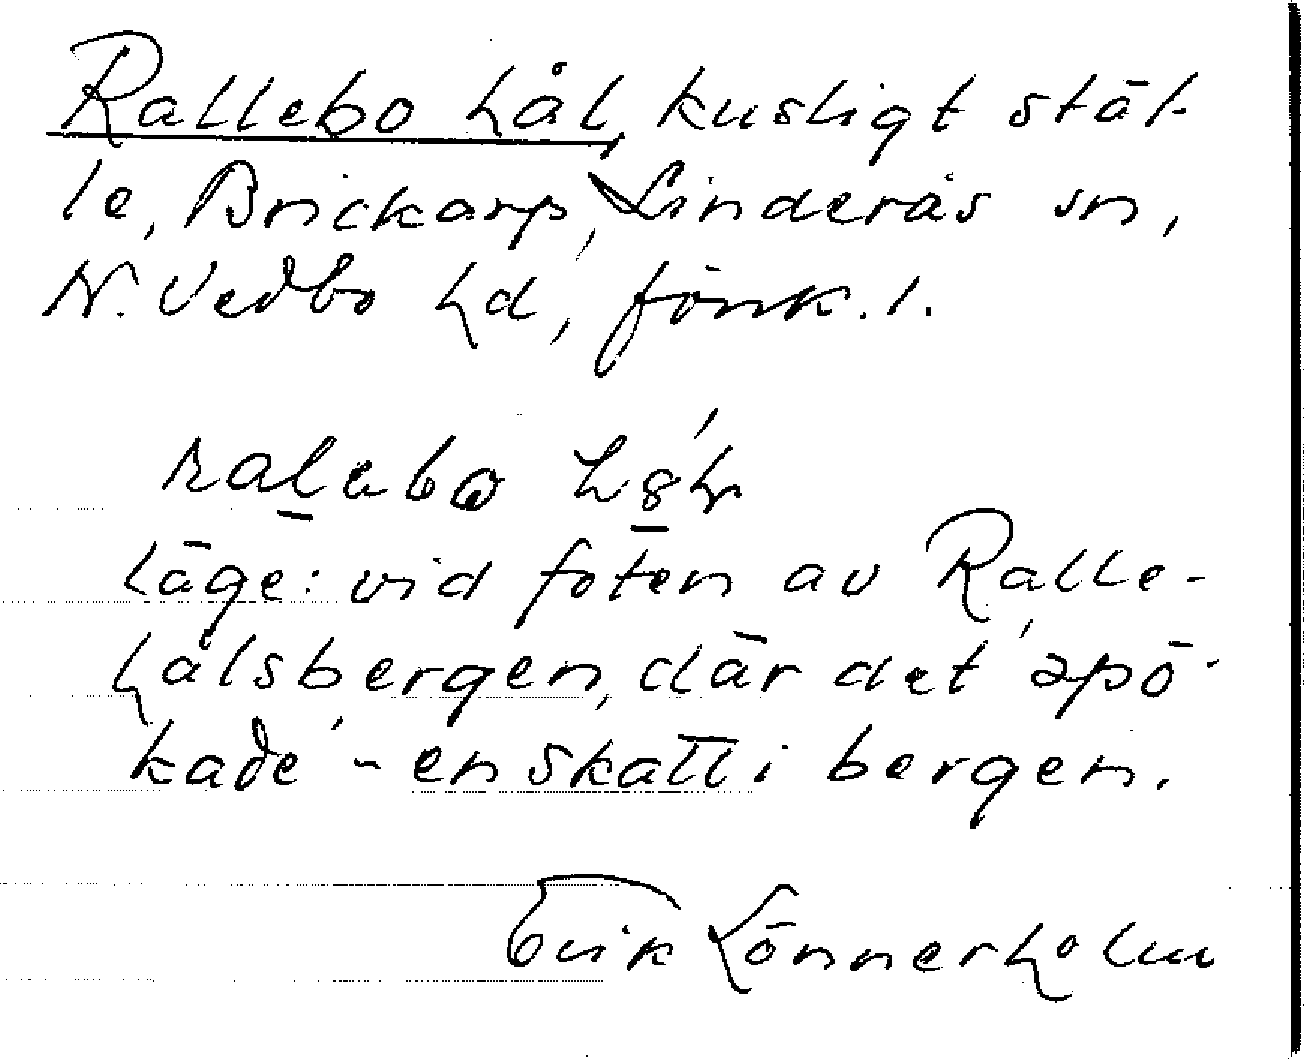 Rallebo hål, kusligt stäl-
le, Brickarp, Linderås sn,
N. Vedbo hd, Jönk. l.
läge: vid foten av Ralle-
hålsbergen, där det 'spö-
kade' - en skatt i bergen.
Erik Lönnerholm